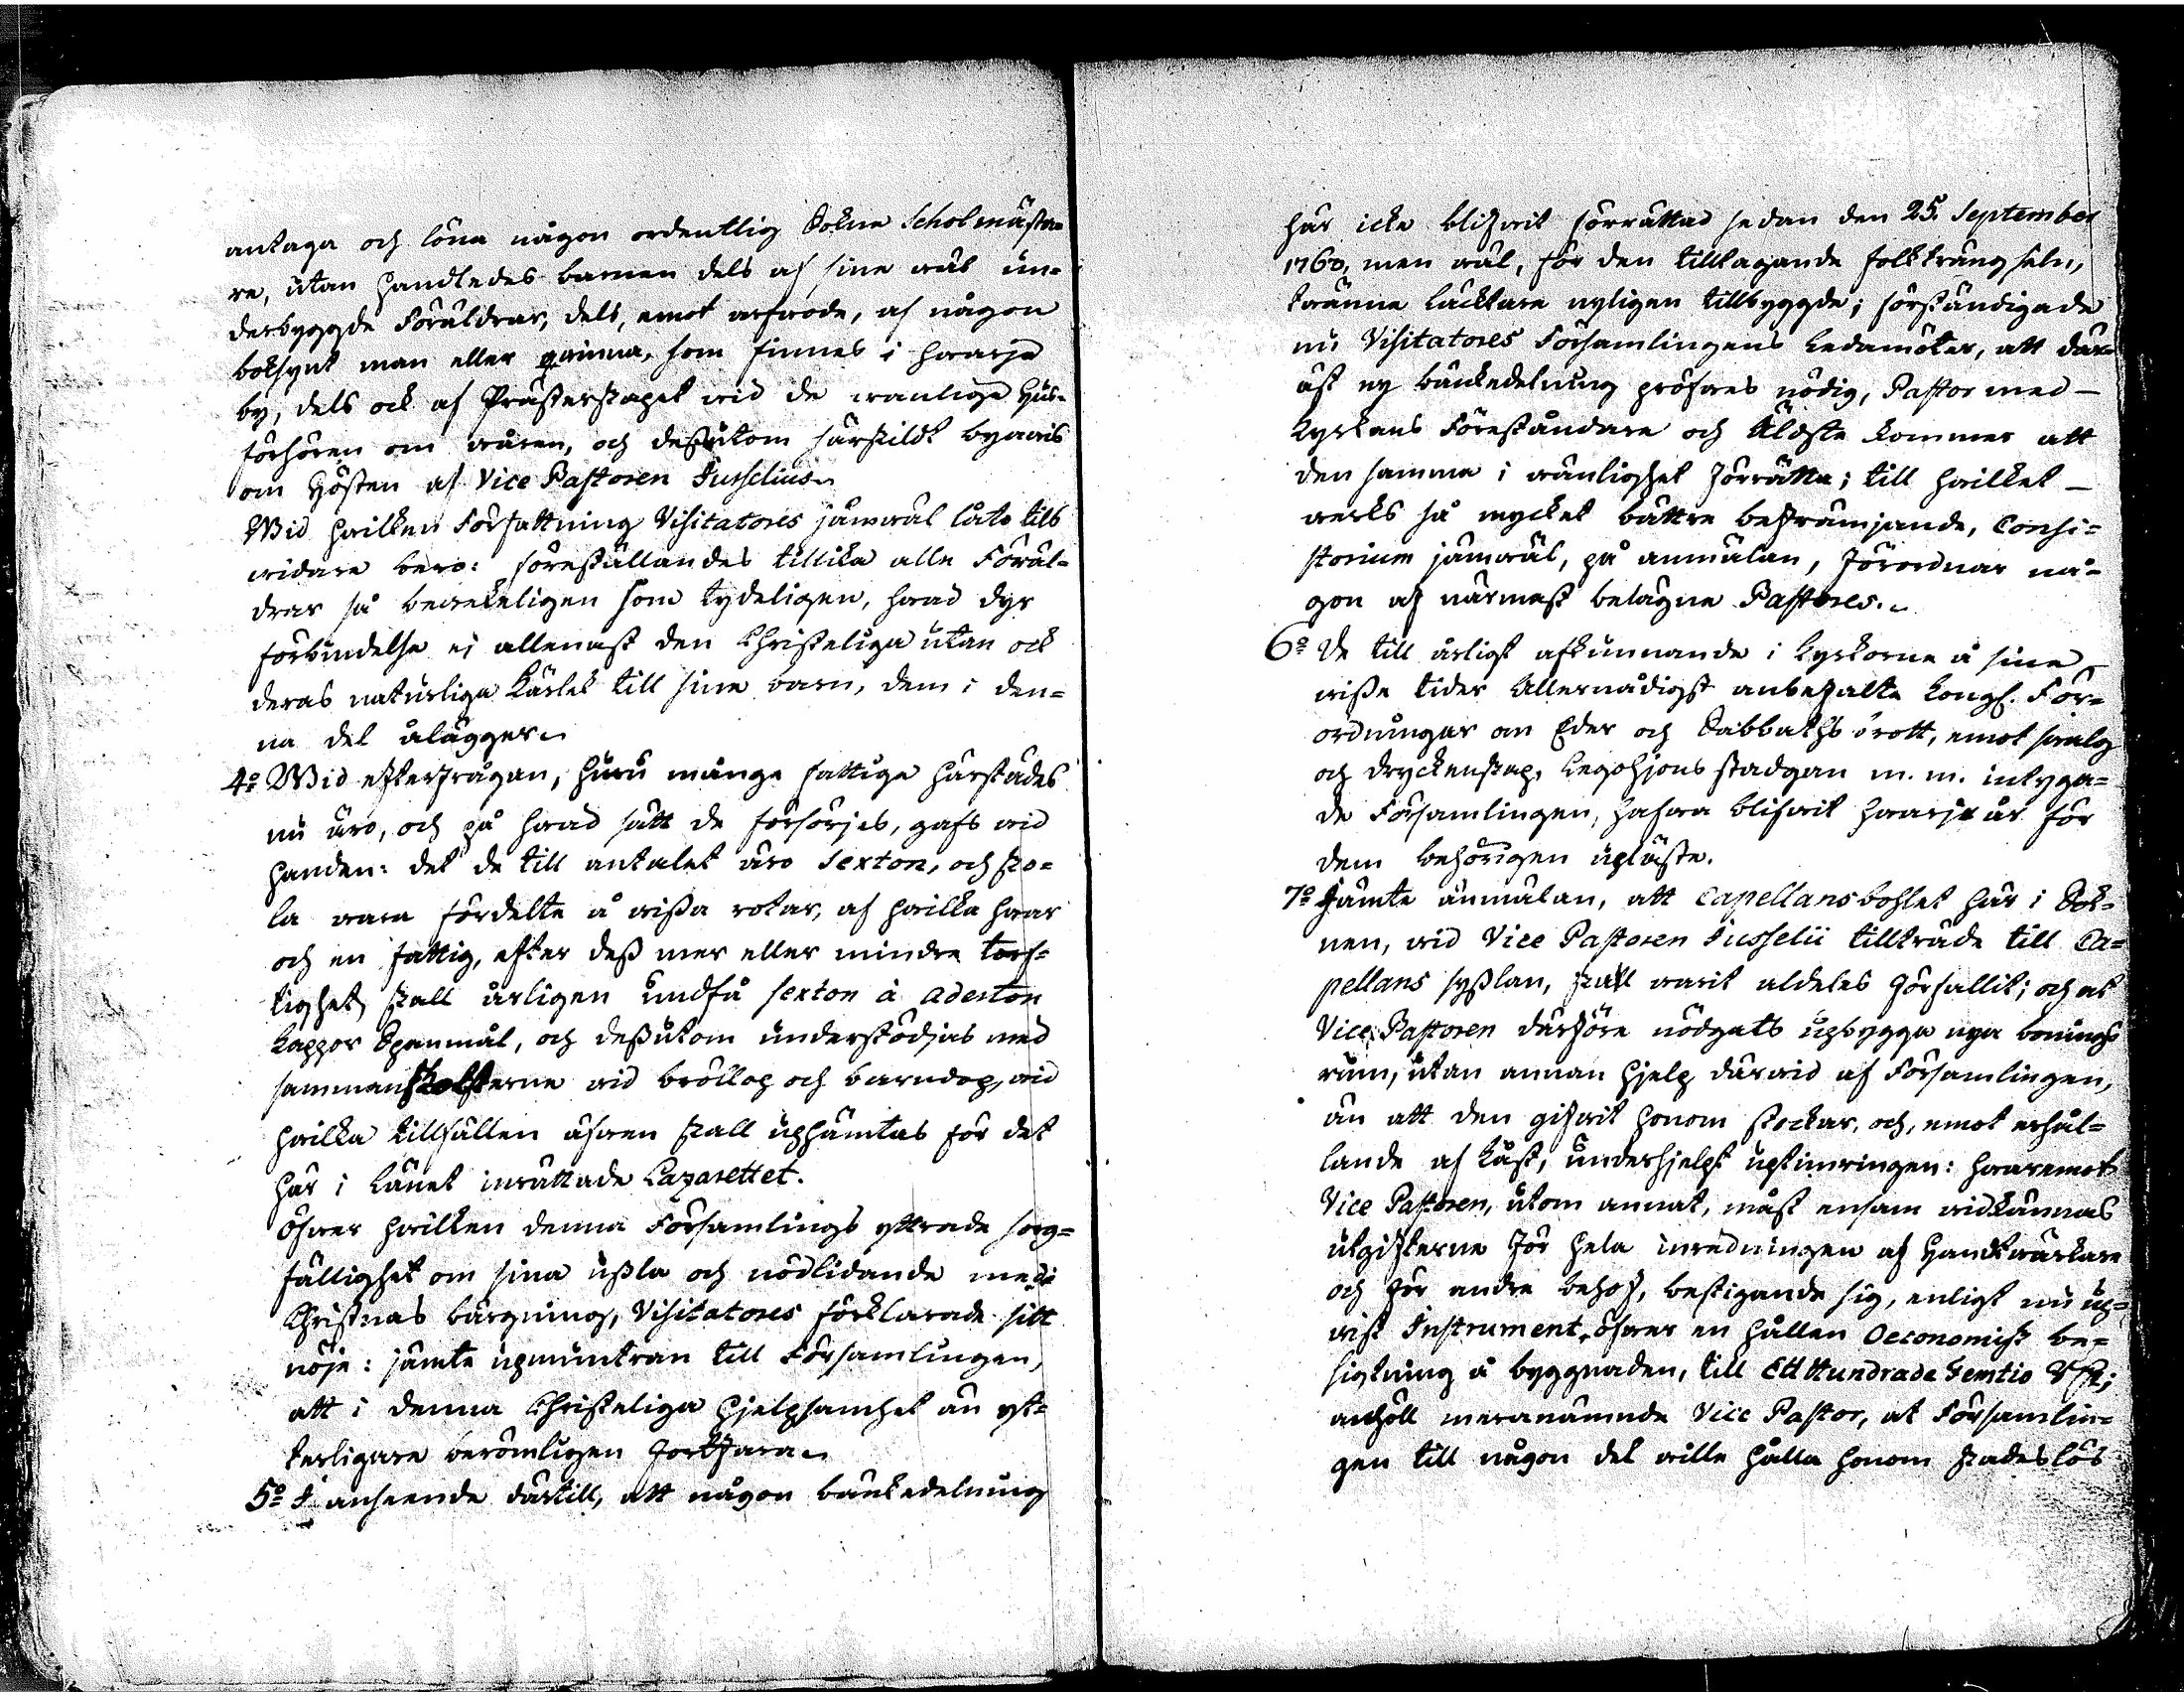 antaga och löna någon ordentlig Sokne Scholmästa-
re, utan handledes barnen dels af sine wäl un-
derbyggde Föräldrar, dels, emot arfwode, af någon
boksynt man eller qwinna, som finnes i hwarje
by, dels ock af Prästerskapet wid de wanlige Hus-
förhören om wåren, och dessutom särskildt bywis
om Hösten af Vice Pastoren Jusselius.
Wid hwilken Författning Visitatores jämwäl läto till
widare bero: föreställandes tillika alle Föräl-
drar så bewekeligen som tydeligen, hwad dyr
förbindelse ej allenast den Christeliga utan ock
deras naturliga Kärlek till sine barn, dem i den-
na del ålägger.
4:o Wid efterfrågan, huru många fattiga härstädes
nu äro, och på hwad sätt de försörjes, gafs wid
handen: det de till antalet äro Sexton, och sko-
la wara fördelte å wissa rotar, af hwilka hwar
och en fattig, efter dess mer eller mindre torf-
tighet, skall årligen undfå sexton à aderton
Kappor Spanmål, och dessutom understödjas med
sammanskotterne wid bröllop och barndop, wid
hwilka tillfällen äfwen skall uphämtas för det
här i Länet inrättade Lazarettet.
Öfwer hwilken denna Församlings yttrade sorg-
fällighet om sina usla och nödlidande med-
Christnas bärgning, Visitatores förklarade sitt
nöje: jämte upmuntran till Församlingen,
att i denna Christeliga hjelpsamhet än yt-
terligare berömligen fortfara.
5:o I anseende därtill, att någon bänkedelning
här icke blifwit förrättad sedan den 25. September
1760, men wäl, för den tilltagande folkträngseln,
twänne Läcktare nyligen tillbyggde; förständigade
nu Visitatores Församlingens Ledamöter, att där-
äst ny bänkedelning pröfwes nödig, Pastor med
Kyrkans Föreståndare och Äldste kommer att
den samma i wänlighet förrätta; till hwilket
werks så mycket bättre befrämjande, Consi-
storium jämwäl, på anmälan, förordnar nå-
gon af närmast belägne Pastores.
6:o De till årligt afkunnande i Kyrkorne å sine
wisse tider Allernådigst anbefalte Kongl. För-
ordningar om Eder och Sabbaths brott, emot swalg
och dryckenskap, Legohjons stadgan m. m. intyga-
de Församlingen, hafwa blifwit hwarje år för
dem behörigen upläste.
7:o Jämte anmälan, att Capellansbohlet här i Sok-
nen, wid Vice Pastoren Jusselii tillträde till Ca-
pellans sysslan, skall warit aldeles förfallit; och at
Vice Pastoren därföre nödgats upbygga nya bonings
rum, utan annan hjelp därwid af Församlingen,
än att den gifwit honom stockar, och, emot erhål-
lande af kost, underhjelpt uptimringen: hwaremot
Vice Pastoren, utom annat, måst ensam widkännas
utgifterne för hela inredningen af Handtwärkare
och för andre behof, bestigande sig, enligt nu up-
wist Instrument, öfwer en hållen Oeconomisk be-
sigtning å byggnaden, till Ett Hundrade Femtio
anhöll meranämnde Vice Pastor, at Församlin-
gen till någon del wille hålla honom skadeslös